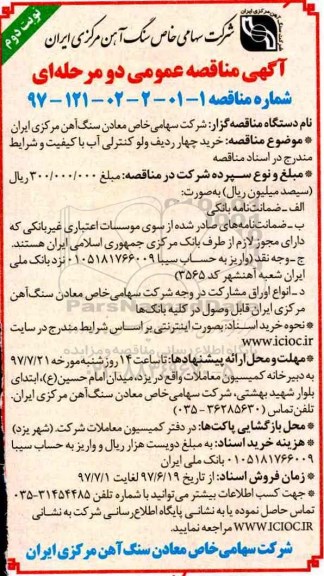 نوبت دوم
شرکت سهامی خاص سنگ آهن مرکزی ایران
آگهی مناقصه عمومی دو مرحله‌ای
شماره مناقصه ۱-۰۱-۲-۰۲-۱۲۱-۹۷
نام دستگاه مناقصه‌گزار: شرکت سهامی خاص معادن سنگ آهن مرکزی ایران
* موضوع مناقصه: خرید چهار ردیف ولو کنترلی آب با کیفیت و شرایط
مندرج در اسناد مناقصه
* مبلغ و نوع سپرده شرکت در مناقصه: مبلغ ۳۰۰/۰۰۰/۰۰۰ ریال
(سیصد میلیون ریال) به‌صورت:
الف ـ ضمانت‌نامه بانکی
ب ـ ضمانت‌نامه‌های صادر شده از سوی موسسات اعتباری غیربانکی که
دارای مجوز لازم از طرف بانک مرکزی جمهوری اسلامی ایران هستند.
ج ـ وجه نقد (واریز به حساب سیبا ۰۱۰۵۱۸۱۷۶۶۰۰۹ نزد بانک ملی
ایران شعبه آهنشهر کد ۳۵۶۳)
د ـ انواع اوراق مشارکت در وجه شرکت سهامی خاص معادن سنگ‌آهن
مرکزی ایران قابل وصول در کلیه بانک‌ها
* نحوه خرید اسناد: بصورت اینترنتی بر اساس شرایط مندرج در سایت
www.icioc.ir
* مهلت و محل ارائه پیشنهادها: تا ساعت ۱۴ روز شنبه مورخه ۹۷/۷/۲۱
به دبیرخانه کمیسیون معاملات واقع در یزد، میدان امام حسین(ع)، ابتدای
بلوار شهید بهشتی، شرکت سهامی خاص معادن سنگ آهن مرکزی ایران.
تلفن تماس (۳۶۲۸۵۶۳۰ - ۰۳۵)
* محل بازگشایی پاکت‌ها: در دفتر کمیسیون معاملات شرکت. (شهر یزد)
* هزینه خرید اسناد: به مبلغ دویست هزار ریال و واریز به حساب سیبا
۰۱۰۵۱۸۱۷۶۶۰۰۹ بانک ملی ایران
* زمان فروش اسناد: از تاریخ ۹۷/۶/۱۹ لغایت ۹۷/۷/۱
* جهت کسب اطلاعات بیشتر می‌توانید با شماره تلفن ۳۱۴۵۴۴۸۵-۰۳۵
تماس حاصل نموده یا به نشانی پایگاه اطلاع‌رسانی شرکت به نشانی
WWW.ICIOC.IR مراجعه نمایید.
شرکت سهامی خاص معادن سنگ آهن مرکزی ایران